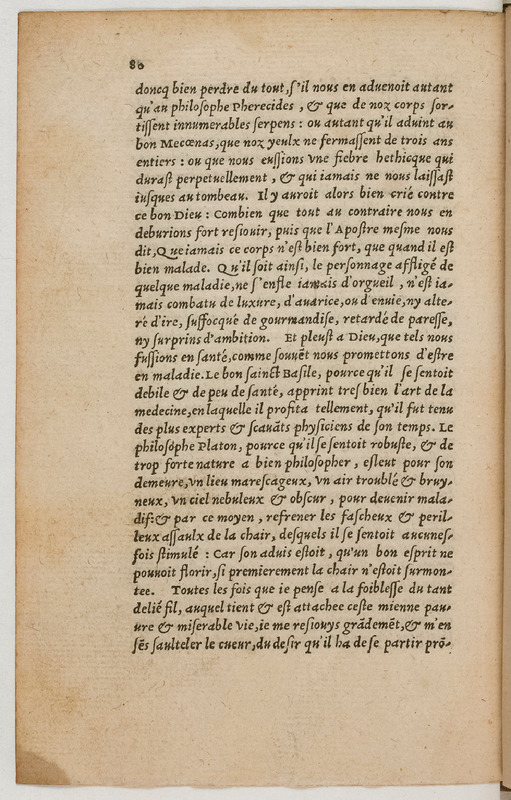 80
doncq bien perdre du tout, s'il nous en aduenoit autant
qu'au philosophe Pherecides, & que de noz corps sor-
tissent innumerables serpens : ou autant qu'il aduint au
bon Mecœnas, que noz yeulx ne fermassent de trois ans
entiers : ou que nous eussions vne fiebre hethicque qui
durast perpetuellement, & qui iamais ne nous laissast
iusques au tombeau. Il y auroit alors bien crié contre
ce bon Dieu : Combien que tout au contraire nous en
deburions fort resiouir, puis que l'Apostre mesme nous
dit, Que iamais ce corps n'est bien fort, que quand il est
bien malade. Qu'il soit ainsi, le personnage affligé de
quelque maladie, ne s'enfle iamais d'orgueil, n'est ia-
mais combatu de luxure, d'auarice, ou d'enuie, ny alte-
ré d'ire, suffocqué de gourmandise, retardé de paresse,
ny surprins d'ambition. Et pleust a Dieu, que tels nous
fussions en santé, comme souuẽt nous promettons d'estre
en maladie. Le bon sainct Basile, pource qu'il se sentoit
debile & de peu de santé, apprint tres bien l'art de la
medecine, en laquelle il profita tellement, qu'il fut tenu
des plus experts & scauãts physiciens de son temps. Le
philosophe Platon, pource qu'il se sentoit robuste, & de
trop forte nature a bien philosopher, esleut pour son
demeure, vn lieu marescageux, vn air troublé & bruy-
neux, vn ciel nebuleux & obscur, pour deuenir mala-
dif: & par ce moyen, refrener les fascheux & peril-
leux assaulx de la chair, desquels il se sentoit aucunes-
fois stimulé : Car son aduis estoit, qu'un bon esprit ne
pouuoit florir, si premierement la chair n'estoit surmon-
tee. Toutes les fois que ie pense a la foiblesse du tant
delié fil, auquel tient & est attachee ceste mienne pau-
ure & miserable vie, ie me resiouys grãdemẽt, & m'en
sẽs saulteler le cueur, du desir qu'il ha de se partir prõ-